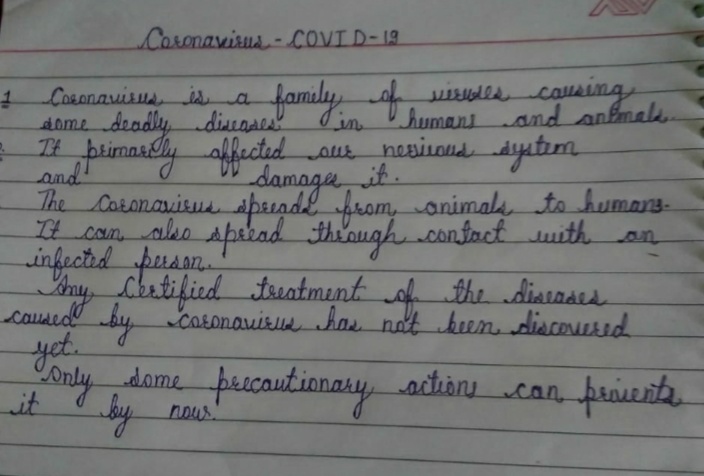 Coronavirus - COVID-19
1 Coronavirus is a family of viruses causing
some deadly diseases in humans and animals.
It primarily affected our nervious system
and damages it.
The coronavirus spreads from animals to humans.
It can also spread through contact with an
infected person.
Any Certified treatment of the diseases
caused by coronavirus has not been discovered
yet.
Only some precautionary actions can prevents
it by now.